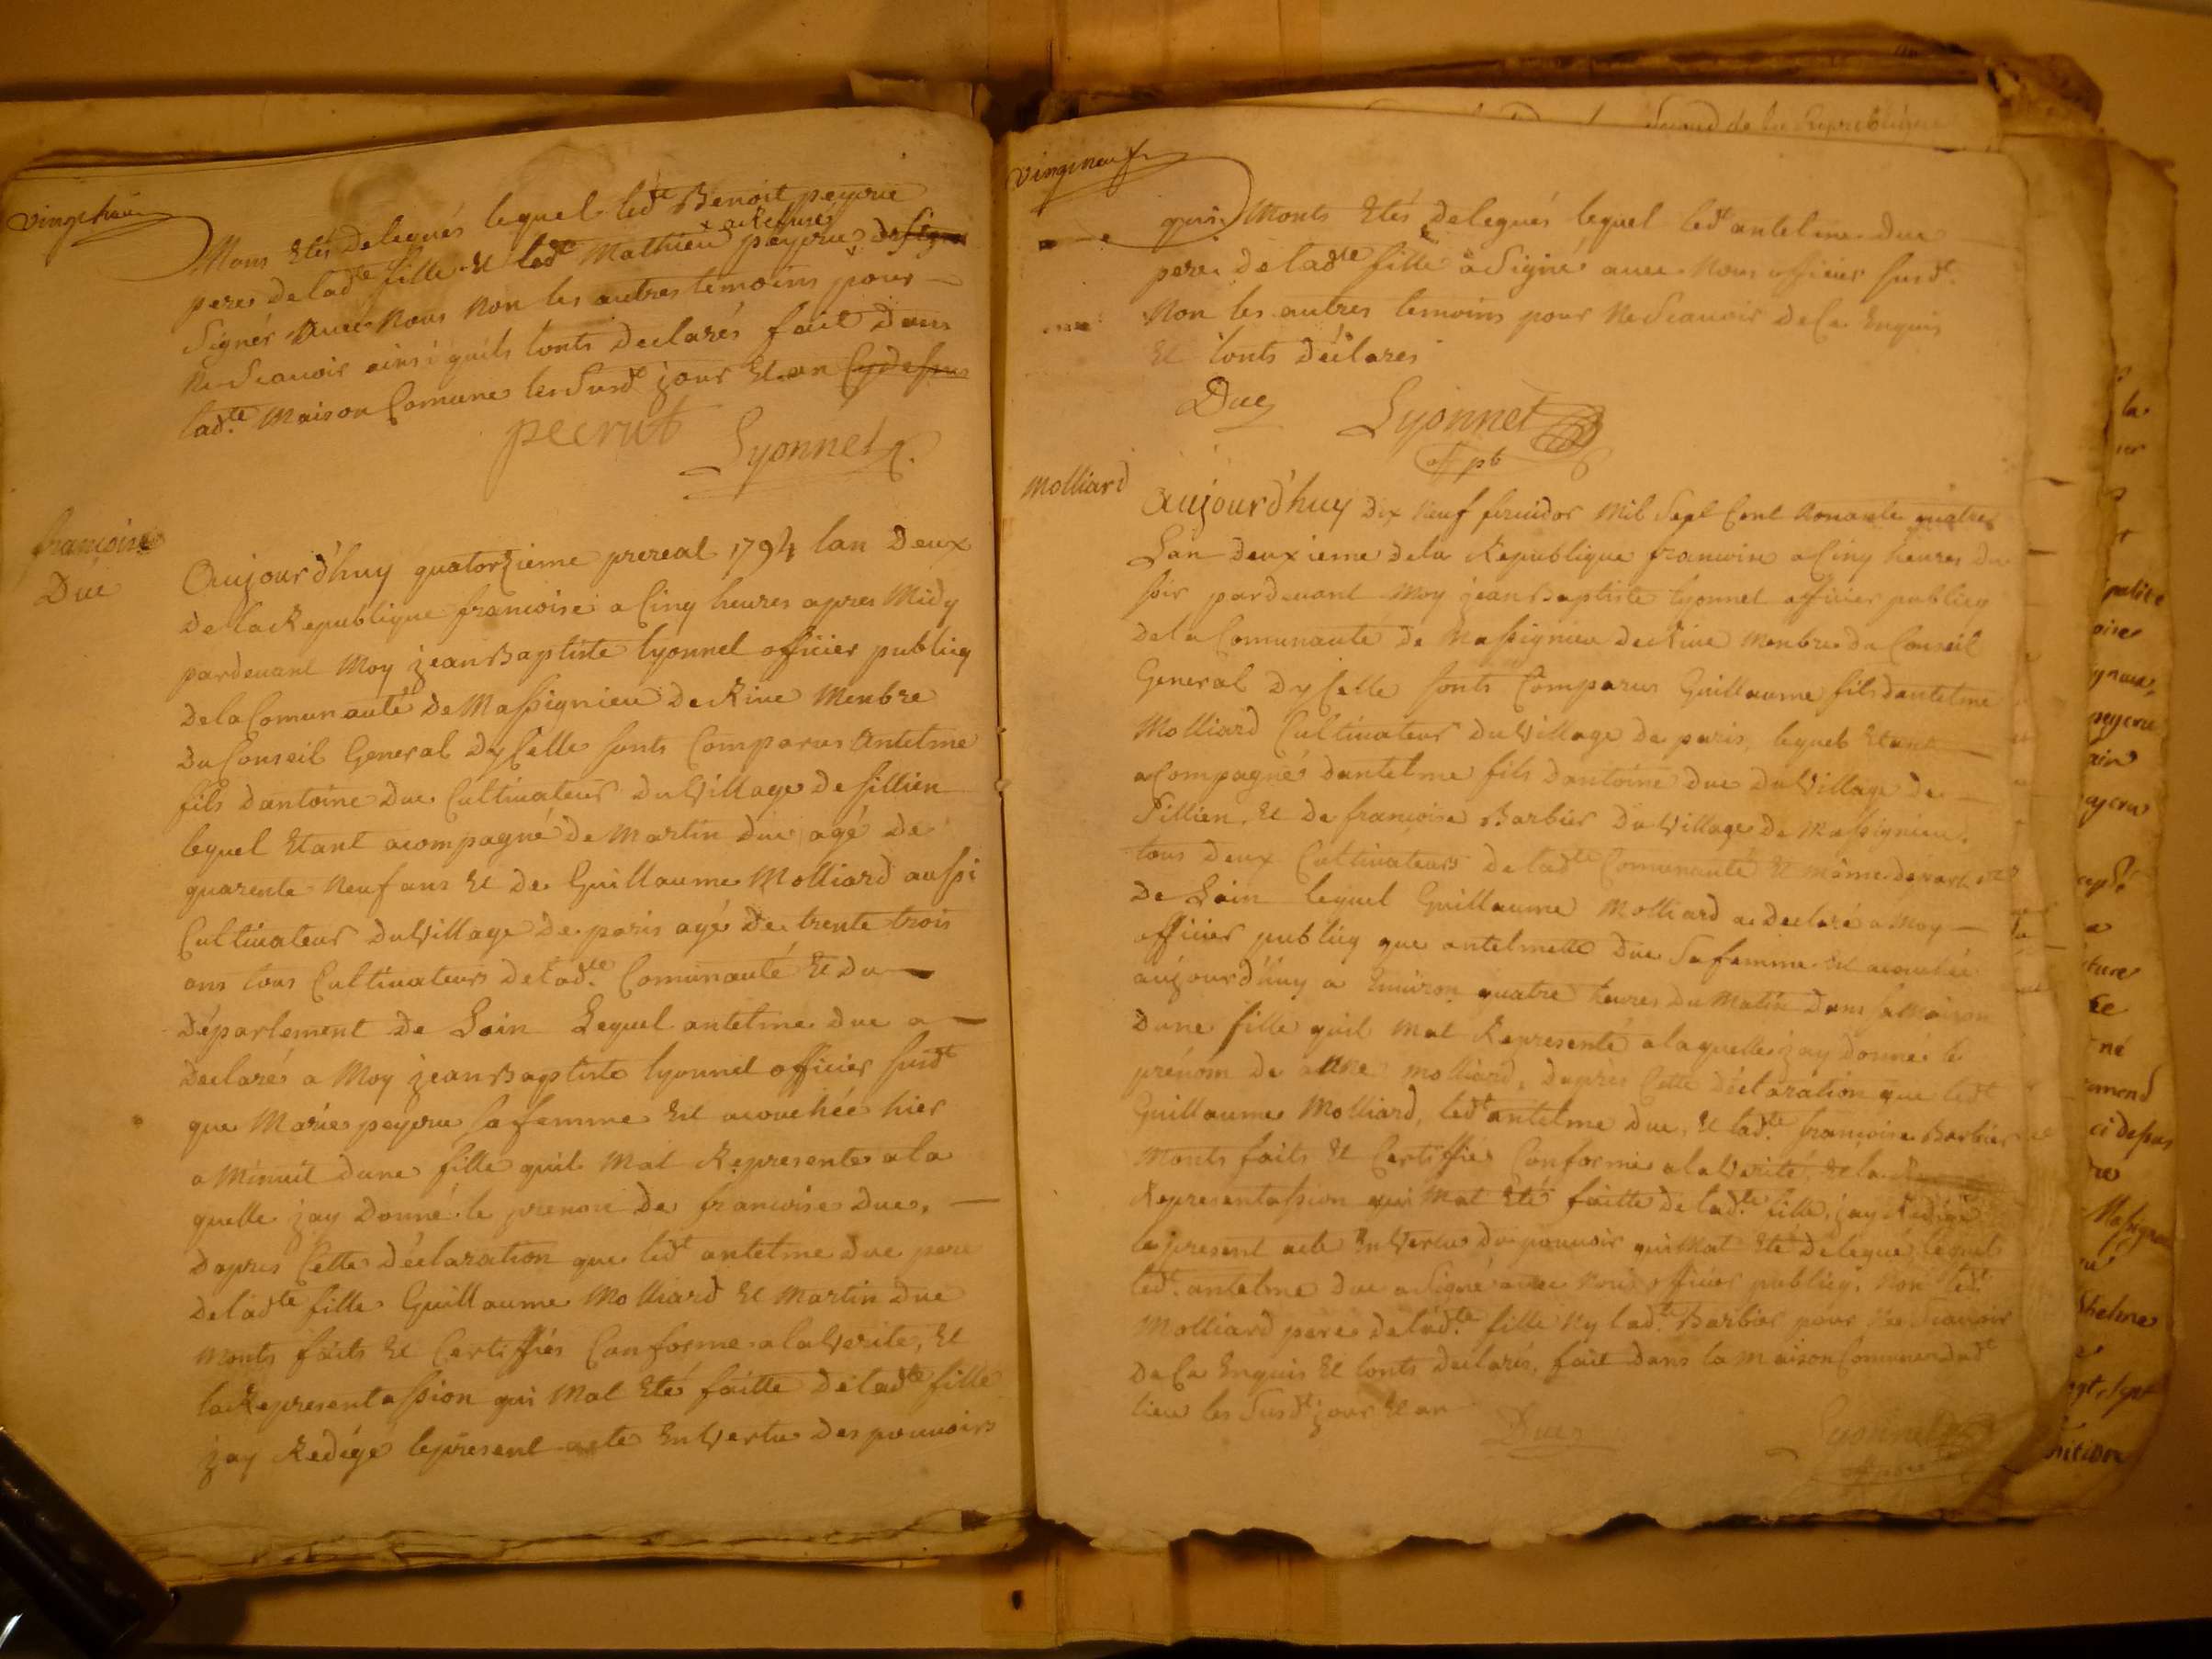 vingthuit
Monts Etés delegués lequel ledt Benoit peyrue
pere de ladte fille et ledt Mathieu peyrue de signé
x a Reffusé
Signér Avec Nous Non les autres temoins pour
Ne Scauoir ainsi quils lonts declarés fait dans
ladte Maison Comune les Susdt jour Et an Cy dessus
pecrut Lyonnet
francoise
Duc
Aujourd'huy quatorzieme prereal 1794 lan Deux
De la Republique francoise a Cinq heures apres Midy
pardeuant Moy jean Baptiste lyonnet officier publicq
de la Comunauté de Massignieu de Riue Menbre
du Conseil General dyCelle sonts Comparus Antelme
fils dantoine Duc Cultiuateur du Village de sillien
lequel Etant acompagné de Martin duc agé de
quarente Neuf ans Et de Guillaume Molliard aussi
Cultiuateur du Village de paris agé de trente trois
ans tous Cultiuateurs de ladte Comunauté Et du
département de Lain Lequel antelme duc a
declarés a Moy jean Baptiste lyonnet officier susdt
que Marie peyrue sa femme Est acouchée hier
a Minuit dune fille quil Mat Represente a la
quelle jay donné le prenon de francoise Duc,
dapres Cette déclaration que ledt antelme duc pere
de ladte fille Guillaume Molliard Et Martin Duc
Monts faits Et Certiffiés Conforme a la Verite, Et
la Representassion qui Mat Eté faitte de ladte fille
jay Redigé le present acte En Vertu des pouuoirs
vingtneuf
qui Monts Etés delegués lequel ledt antelme duc
pere de ladte fille a Signé auec Nous officier susdt
Non les autres temoins pour Ne Scauoir de Ce Enquis
Et lonts déclarés
Duc Lyonnet
off pb
Molliard
Aujourd'huy dix Neuf fruidor Mil Sept Cent Nonante quatre
Lan deuxieme de la Republique francoise a Cinq heures du
soir pardeuant Moy jean Baptiste lyonnet officier publicq
de la Comunauté de Massignieu de Riue Menbre du Conseil
General dyCelle sonts Comparus Guillaume fils dantelme
Molliard Cultiuateur du Village de paris, lequel Etant
aCompagné dantelme fils dantoine duc du Village de
Sillien, Et de francoise Barbier du Village de Massignieu.
tous deux Cultiuateurs de ladte Comunauté Et même
De Lain lequel Guillaume Molliard a declaré a Moy
officier publicq que antelmette Duc Sa femme Est acouchée
aujourd'huy a Enuiron quatre heures du Matin dans sa Maison
dune fille quil Mat Representé a laquelle jay donné le
prénom de anne molliard, dapres Cette déclaration que ledt
Guillaume Molliard, ledt antelme duc, Et ladte francoise Barbier
Monts faits Et Certiffiés Conforme a la Verité, Et la
Representassion qui Mat Eté faitte de ladte fille, jay Redigé
le present acte En Vertu du pouuoir qui Mat Eté delegué lequel
ledt antelme duc a Signé auec Nous officier publicq, Non ledt
Molliard pere de ladte fille Ny ladte Barbier pour Ne Scauoir
de Ce Enquis Et lonts declarés, fait dans la Maison Comune dudt
lieu les Susdt jour Et an
Duc Lyonnet